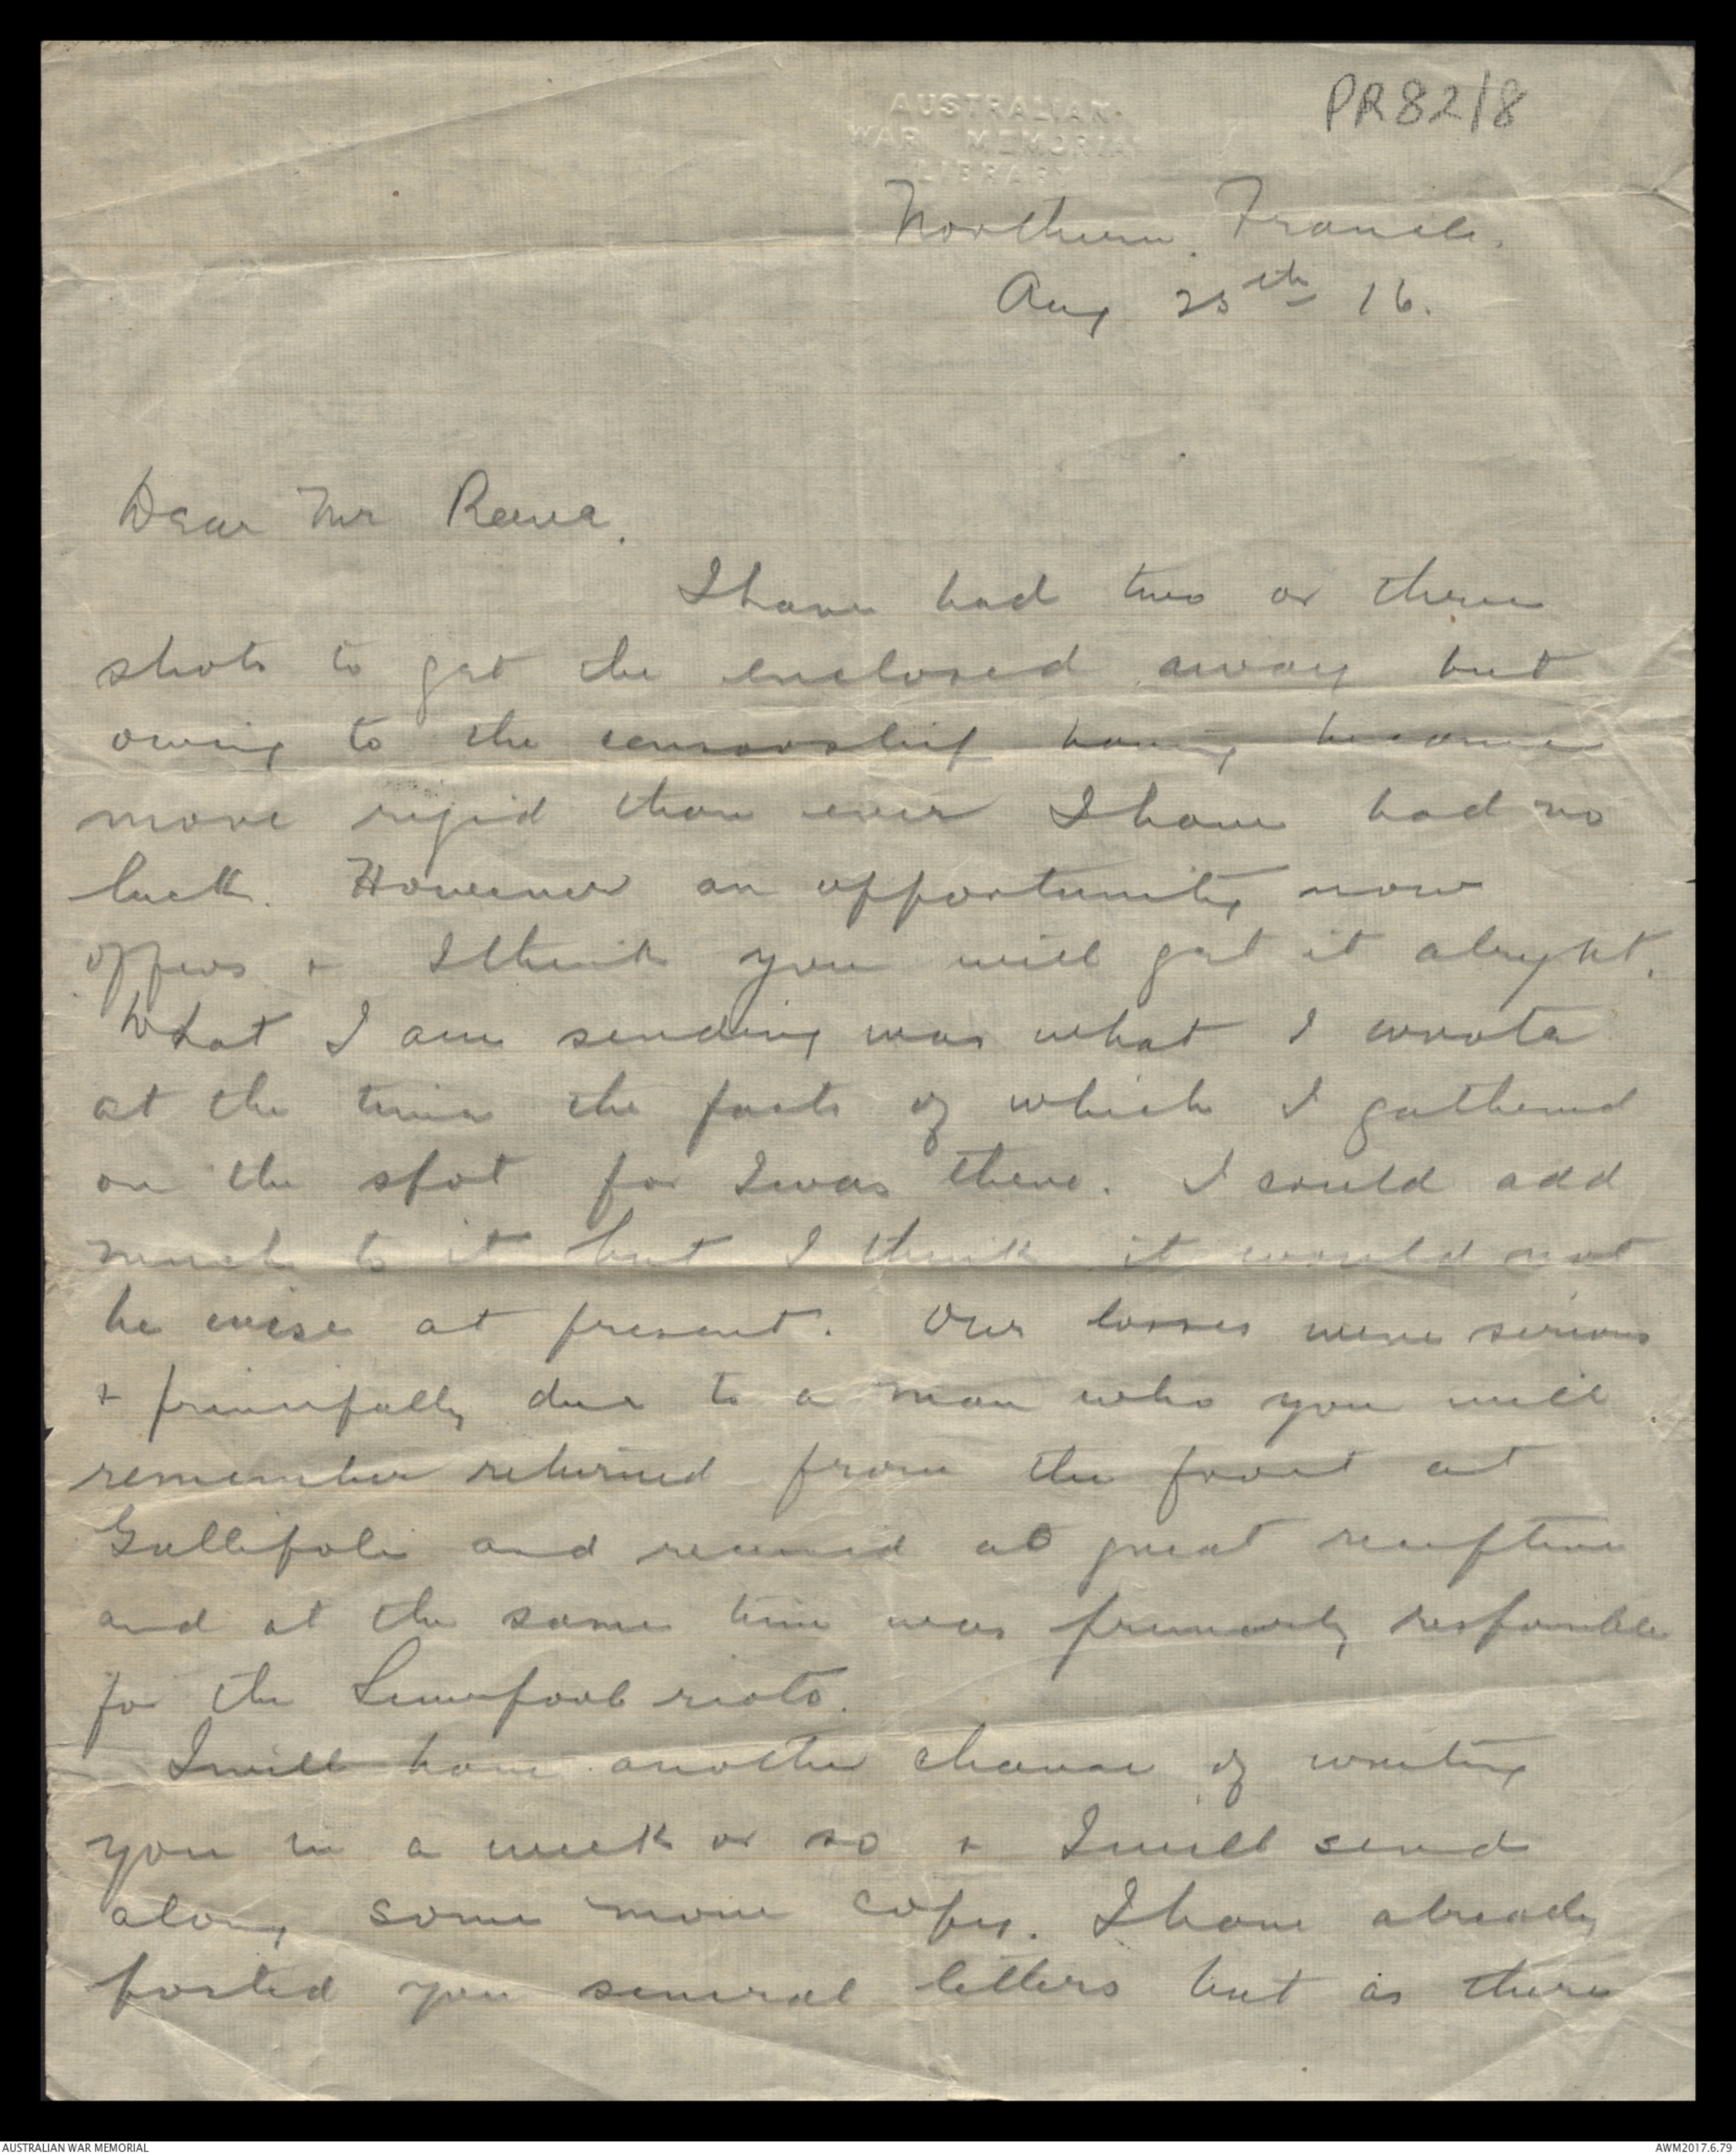 PR82/8
AUSTRALIAN
WAR MEMORIAL
LIBRARY
Northern France.
Aug 25th 16.
Dear Mr
I have had two or three
shots to get the enclosed away but
owing to the censorship having become
more rigid than ever I have had no
luck. However an opportunity now
offers + I think you will get it alright.
What I am sending was what I wrote
at the time the facts of which I gathered
on the spot for I was there. I could add
much to it but I think it would not
be wise at present. Our losses were serious
+ principally due to a man who you will
remember returned from the front at
Gallipoli and received a great reception
and at the same time was primarily responsible
for the Liverpool riots.
I will have another chance of writing
you in a week or so + I will send
along some more copy. I have already
posted you several letters but as there
AUSTRALIAN WAR MEMORIAL
AWM2017.6.79